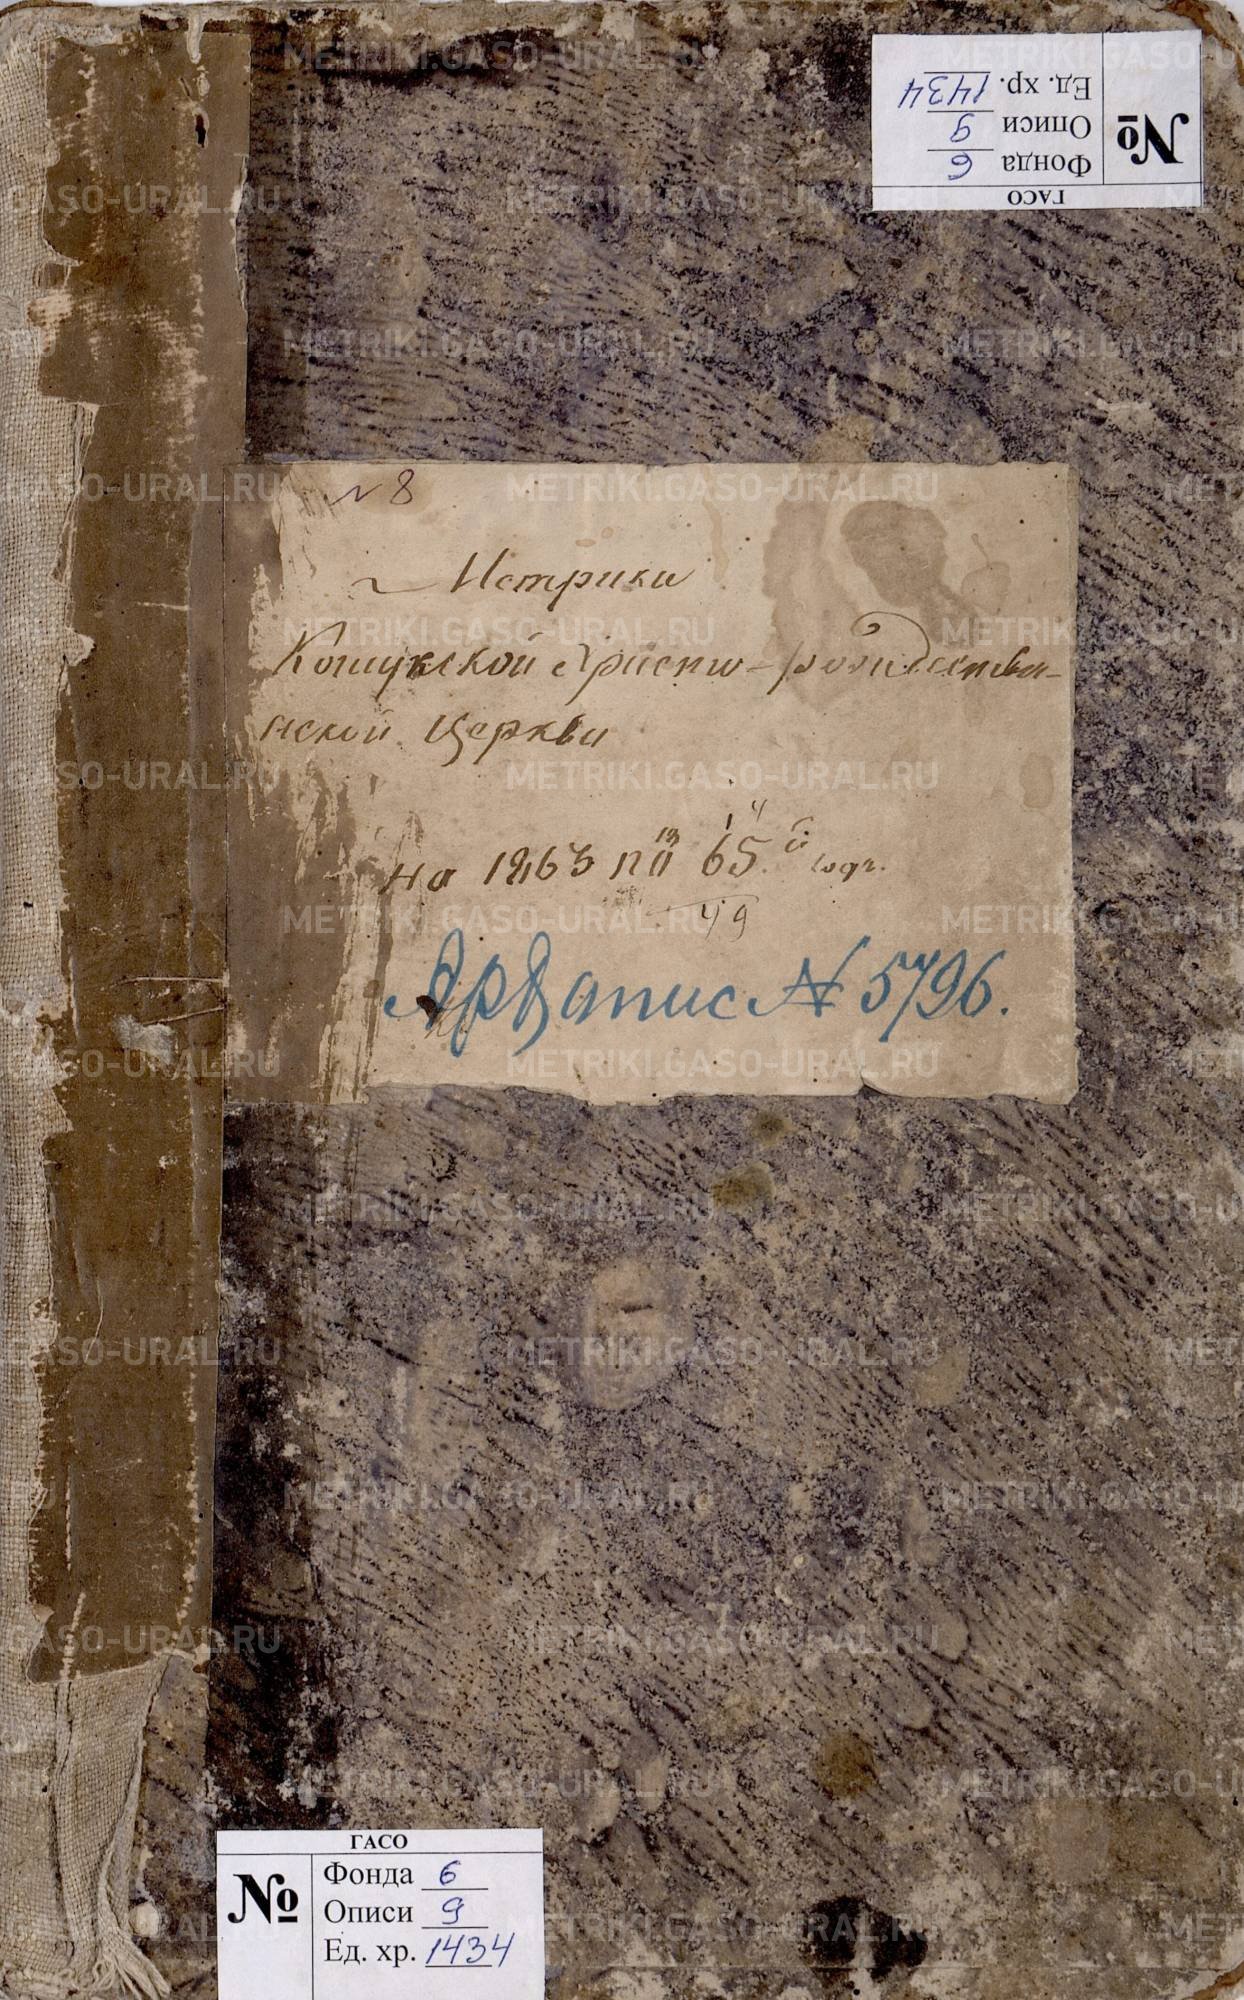 ГАСО
№
Фонда 6
Описи 9
Ед. хр. 1434
N 8
Метрики
Кошукской Христо-рождествен-
ской Церкви
На 1863 по 65 годъ.
49
№ 5796.
ГАСО
№
Фонда 6
Описи 9
Ед. хр. 1434
METRIKI.GASO-URAL.RU